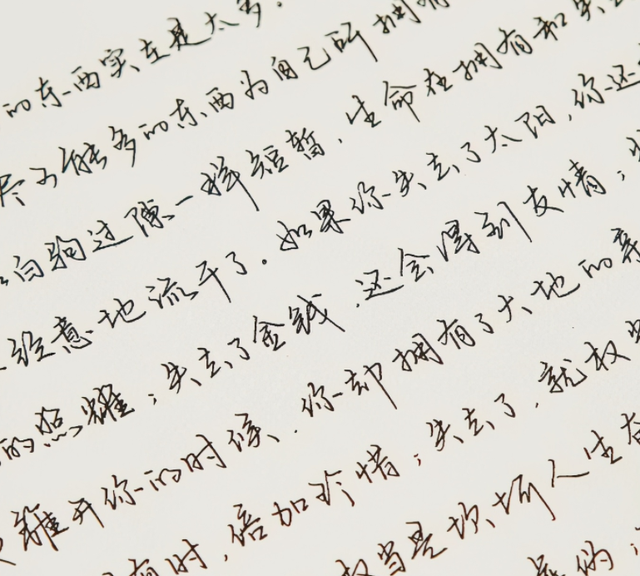 的东西实在是太多.
尽可能多的东西为自己所拥有
白驹过隙一样短暂,生命在拥有和失
经意地流干了.如果你失去了太阳,你还
的照耀;失去了金钱,还会得到友情;
离开你的时候,你却拥有了大地的亲
有时,倍加珍惜;失去了,就权当
权当是坎坷人生